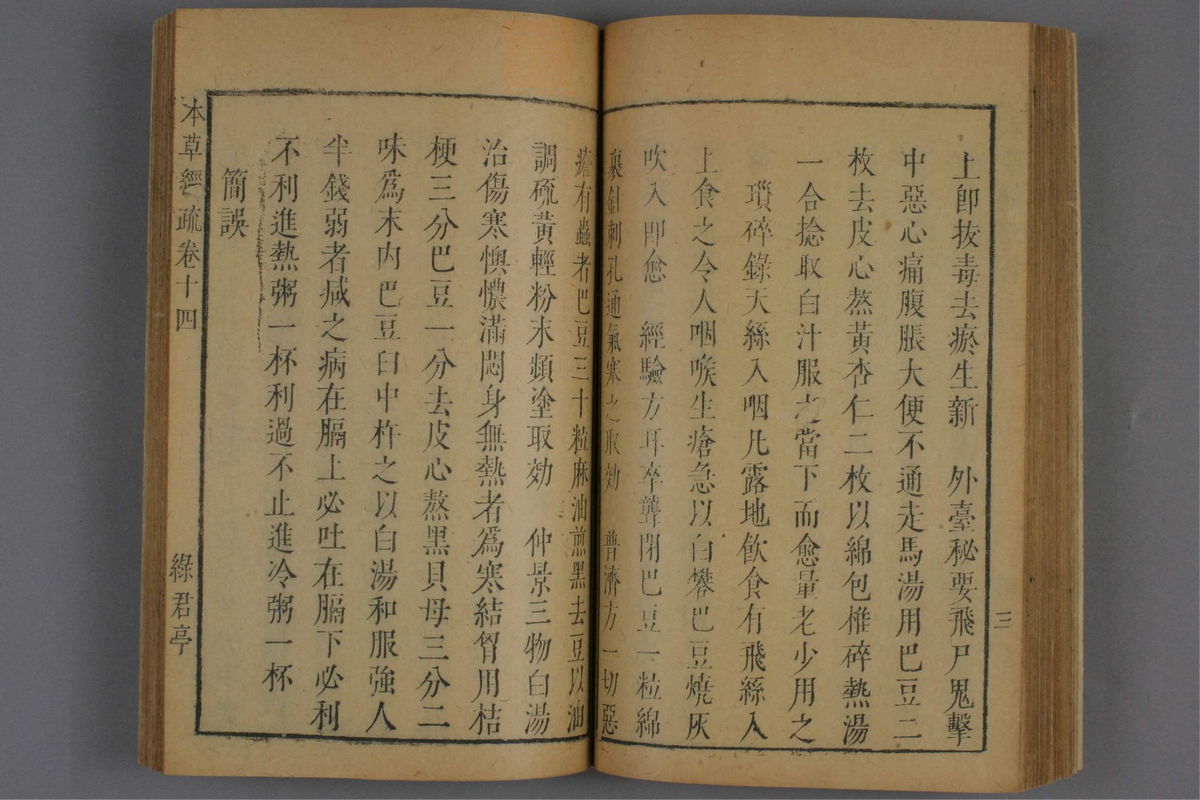 上卽拔毒去瘀生新　外臺秘要飛尸鬼擊
中惡心痛腹脹大便不通走馬湯用巴豆二
枚去皮心熬黃杏仁二枚以綿包椎碎熱湯
一合捻取白汁服之當下而愈量老少用之
瑣碎錄天絲入咽凡露地飮食有飛絲入
上食之令人咽喉生瘡急以白礬巴豆燒灰
吹入卽愈　經驗方耳卒聾閉巴豆一粒綿
裹針刺孔通氣塞之取効　普濟方一切惡
瘡有蟲者巴豆三十粒麻油煎黑去豆以油
調硫黃輕粉末頻塗取効　仲景三物白湯
治傷寒懊憹滿悶身無熱者爲寒結胷用桔
梗三分巴豆一分去皮心熬黑貝母三分二
味爲末內巴豆臼中杵之以白湯和服強人
半錢弱者減之病在膈上必吐在膈下必利
不利進熱粥一杯利過不止進冷粥一杯
簡誤
本草經疏卷十四
綠君亭
三